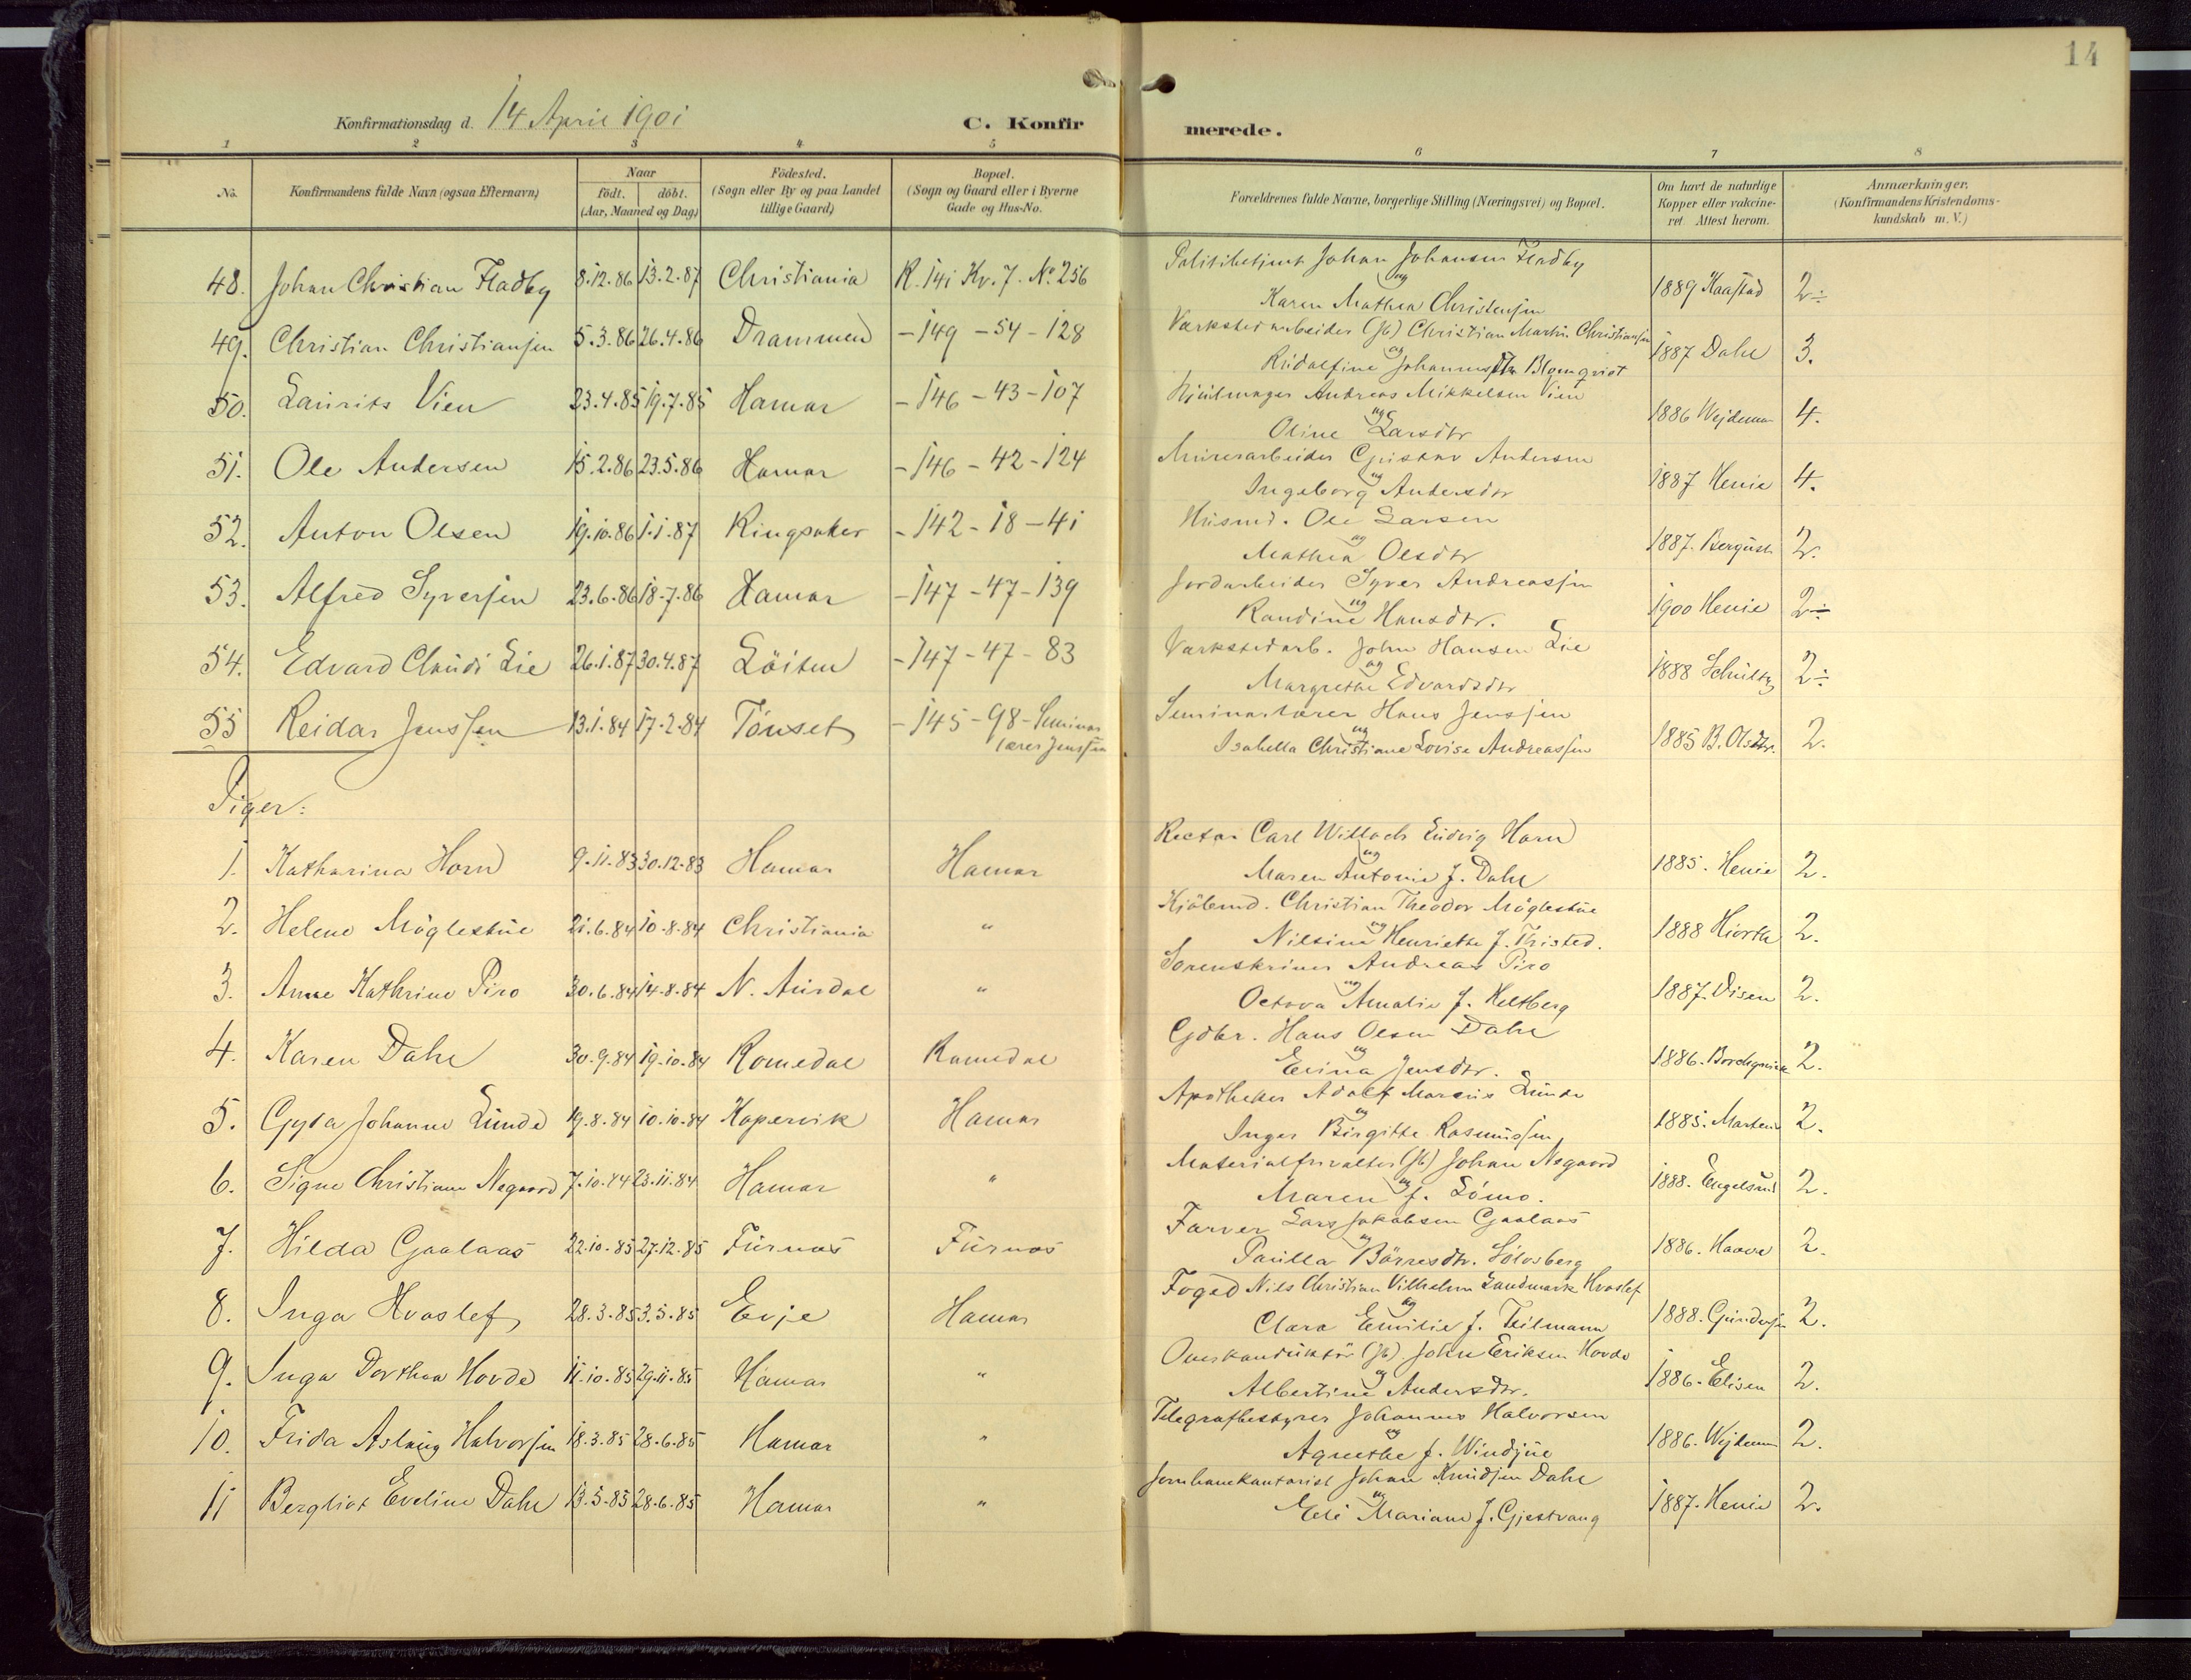 14
Konfirmationsdag d. 14 April 1901
C. Konfirmerede.
1 2 3 4 5 6 7 8
No. Konfirmandens fulde Navn (ogsaa Efternavn) Naar födt. döbt. (Aar, Maaned og Dag) Födested. (Sogn eller By og paa Landet tillige Gaard) Bopæl. (Sogn og Gaard eller i Byerne Gade og Hus-No. Forældrenes fulde Navne, borgerlige Stilling (Næringsvei) og Bopæl. Om havt de naturlige Kopper eller vakcineret Attest herom. Anmærkninger. (Konfirmandens Kristendomskundskab m. V.)
48. Johan Christian Fladby 8.12.86 13.2.87 Christiania R. 141 Kv. 7. No. 256 Politibetjent Johan Johansen Fladby og Karen Mathea Christensen 1889 Kaastad 2÷
49. Christian Christiansen 5.3.86 26.4.86 Drammen - 149 - 54 - 128 Værkstedarbeider (Jb) Christian Martin Christiansen og Rudolfine Johannesdtr Blomqvist 1887 Dahl 3.
50. Laurits Vien 23.4.85 19.7.85 Hamar - 146 - 43 - 107 Hjulmager Andreas Mikkelsen Vien og Oline Larsdtr 1886 Wejdeman 4.
51. Ole Andersen 15.2.86 23.5.86 Hamar - 146 - 42 - 124 Murerarbeider Gustav Andersen og Ingeborg Andersdtr 1887 Henie 4.
52. Anton Olsen 19.10.86 1.1.87 Ringsaker - 142 - 18 - 41 Husmd. Ole Larsen og Mathea Olsdtr 1887. 2.
53. Alfred Syversen 23.6.86 18.7.86 Hamar - 147 - 47 - 139 Jordarbeider Syver Andreassen og Randine Hansdtr. 1900 Henie 2÷
54. Edvard Claudi Lie 26.1.87 30.4.87 Löiten - 147 - 47 - 83 Værkstedarb. John Hansen Lie og Margrethe Edvardsdtr 1888 Schultz 2÷
55 Reidar Jenssen 13.1.84 17.2.84 Tönset - 145 - 98 - Seminarlærer Jenssen Seminarlærer Hans Jenssen og Isabella Christiane Lovise Andreassen 1885 B. Olsdtr. 2.
Piger:
1. Katharina Horn 9.11.83 30.12.83 Hamar Hamar Rector Carl Willoch Ludvig Horn og Maren Antonie f. Dahl 1885. Henie 2.
2. Helene Möglestue 21.6.84 10.8.84 Christiania " Kjöbmd. Christian Theodor Möglestue og Nilsine Henriette f. Thisted. 1888 Hiorth 2.
3. Anne Kathrine Piro 30.6.84 14.8.84 N. Aurdal " Sorenskriver Andreas Piro og Octova Amalie f. Heltberg 1887. Disen 2.
4. Karen Dahl 30.9.84 19.10.84 Romedal Romedal Gdbr. Hans Olsen Dahl og Elina Jensdtr. 1886. Borchgrevink 2.
5. Gyda Johanne Lunde 19.8.84 10.10.84 Kopervik Hamar Apotheker Adolf Marcus Lunde og Inger Birgitte Rasmussen 1885. Martens 2.
6. Signe Christiane Nøgaard 7.10.84 23.11.84 Hamar " Materialforvalter (Jb) Johan Nøgaard og Maren f. Lömo. 1888. Engelsrud 2.
7. Hilda Gaalaas 22.10.85 27.12.85 Furnæs Furnæs Farver Lars Jakobsen Gaalaas og Paulla Börresdtr. Sölvsberg 1886. Haave 2.
8. Inga Hvoslef 28.3.85 3.5.85 Evje Hamar Foged Nils Christian Vilhelm Landmark Hvoslef og Clara Emilie f. Teilmann 1888. Gundersen 2.
9. Inga Dorthea Hovde 11.10.85 29.11.85 Hamar " Overkonduktör (Jb). John Eriksen Hovde og Albertine Andersdtr. 1886. Elisen 2.
10. Frida Aslaug Halvorsen 18.3.85 28.6.85 Hamar " Telegrafbestyrer Johannes Halvorsen og Agnethe f. Windjue 1886. Wejdeman 2.
11 Bergliot Eveline Dahl 13.5.85 28.6.85 Hamar " Jernbanekontorist Johan Knudsen Dahl og Eli Mariane f. Gjestvang 1887. Henie 2.